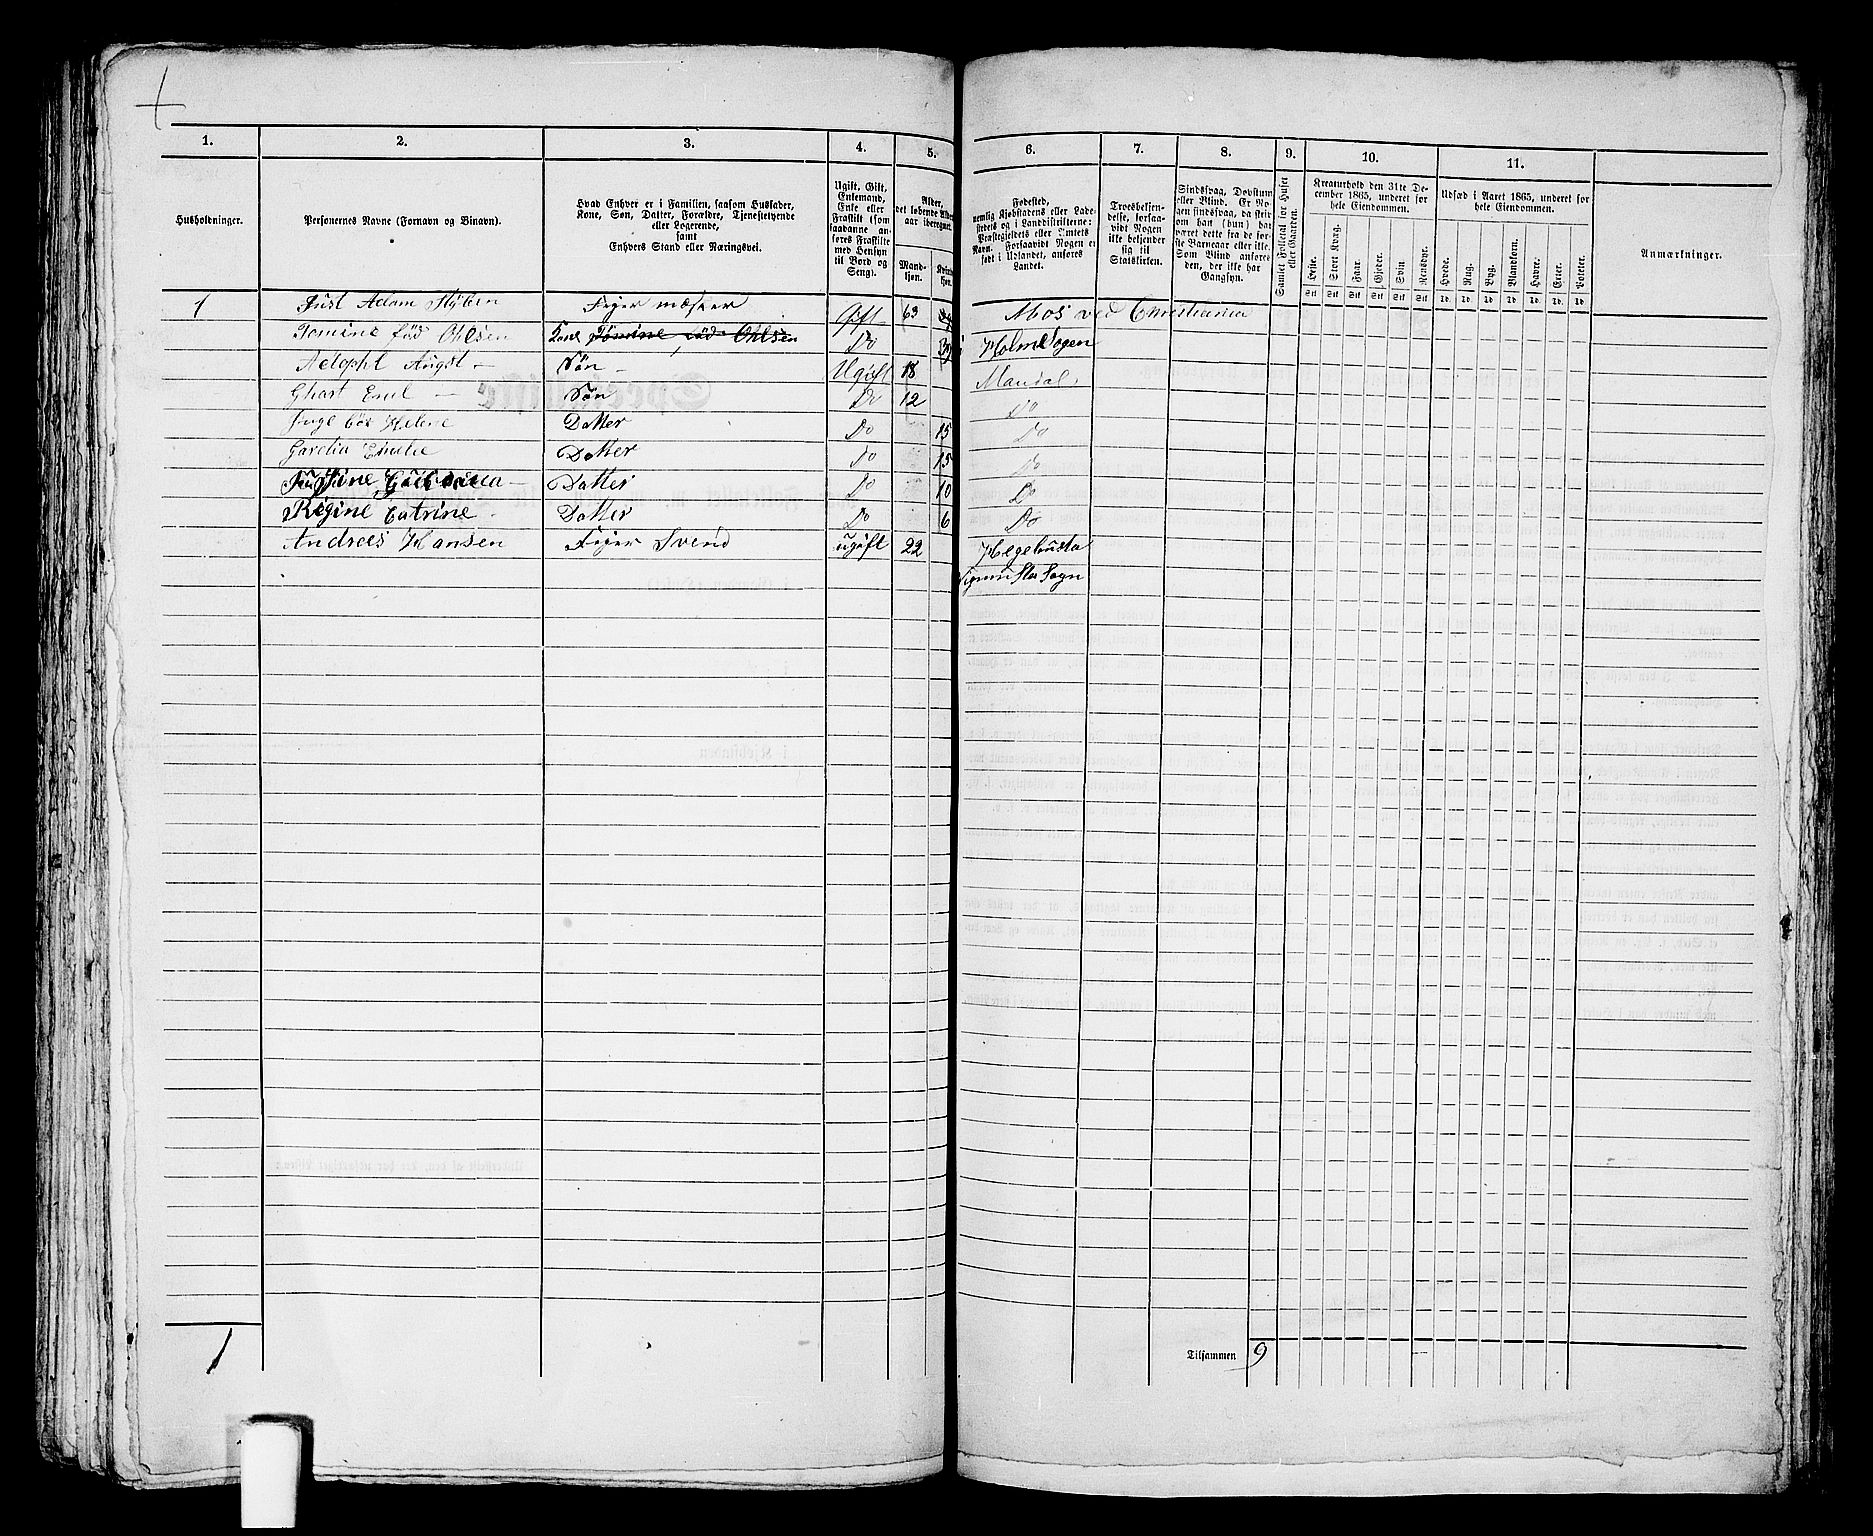 1. 2. 3. 4. 5. 6. 7. 8. 9. 10. 11.
Husholdninger.
Personernes Navne (Fornavn og Binavn).
Hvad Enhver er i Familien, saasom Husfader,
Kone, Søn, Datter, Forældre, Tjenestetyende
eller Logerende,
samt
Enhvers Stand eller Næringsvei.
Ugift, Gift,
Enkemand,
Enke eller
Fraskilt (som
saadanne an-
føres Fraskilte
med Hensyn
til Bord og
Seng).
Alder,
det løbende Alders-
aar iberegnet.
Mand-
kjøn.
Kvinde-
kjøn.
Fødested,
nemlig Kjøbstadens eller Lade-
stedets og i Landdistrikterne:
Præstegjeldets eller Amtets
Navn. Forsaavidt Nogen er
født i Udlandet, anføres
Landet.
Troesbekjen-
delse, forsaa-
vidt Nogen
ikke bekjender
sig til
Statskirken.
Sindssvag, Døvstum
eller Blind. Er No-
gen sindssvag, da skri-
ves om han (hun) har
været dette fra de før-
ste Barneaar eller ikke.
Som Blind anføres
den, der ikke har
Gangsyn.
Samlet Folketal for Huset
eller Gaarden.
Kreaturhold den 31te De-
cember 1865, underet for
hele Eiendommen.
Heste. Stort Kvæg. Faar. Gjeder. Sviin. Rensdyr.
Stk Stk Stk Stk Stk Stk
Udsæd i Aaret 1865, underet for
hele Eiendommen.
Hvede. Rug. Byg. Blandkorn. Havre. Erter. Poteter.
Td. Td. Td. Td. Td. Td. Td.
Anmærkninger.
1 Just Adam Stÿben Fejer mæster Gift 63 Mos ved Christiania
Tomine fød Ohlsen Kone Tomine född Ohlsen Do Holme Sogen
Adopht August Søn Ugift 18 Mandal
Emil Søn Do 12 Do
Helene Datter Do 15 Do
Emelie Datter Do 15 Do
Datter Do 10 Do
Regine Catrine Datter Do 6 Do
Andrees Hansen Fejer Svend ugift 22
Sogn
1
Tilsammen 9